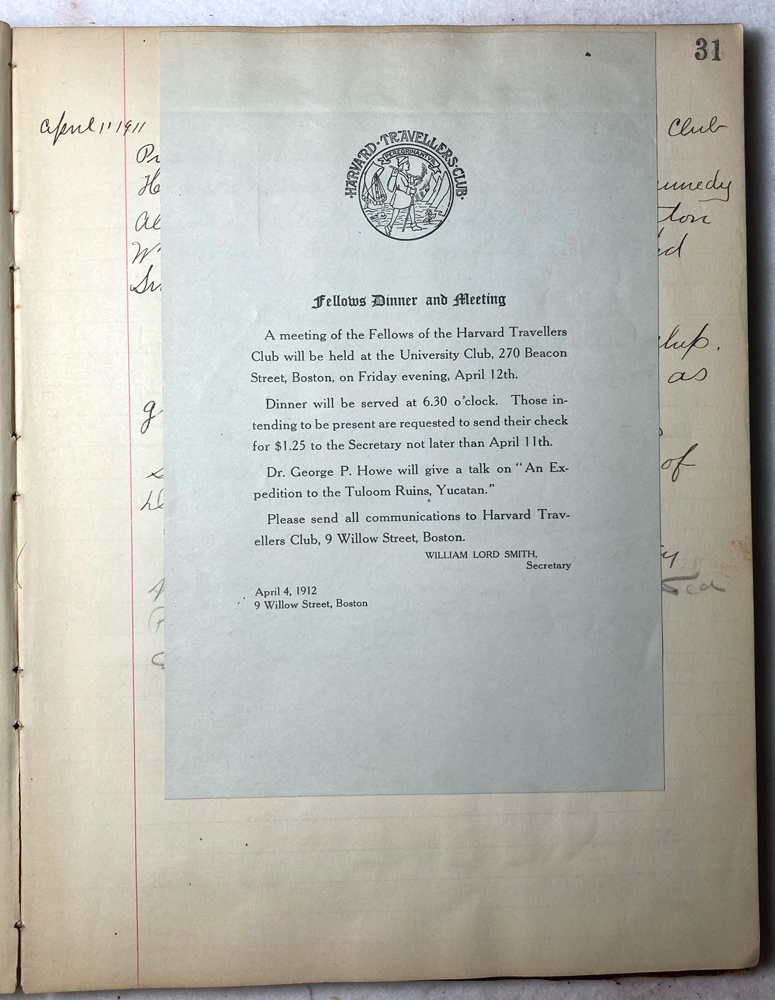 31
April 11 1911
Club
HARVARD·TRAVELLERS·CLUB
PEREGRINANTVR
Fellows Dinner and Meeting
A meeting of the Fellows of the Harvard Travellers
Club will be held at the University Club, 270 Beacon
Street, Boston, on Friday evening, April 12th.
Dinner will be served at 6.30 o'clock. Those in-
tending to be present are requested to send their check
for $1.25 to the Secretary not later than April 11th.
Dr. George P. Howe will give a talk on "An Ex-
pedition to the Tuloom Ruins, Yucatan."
Please send all communications to Harvard Trav-
ellers Club, 9 Willow Street, Boston.
WILLIAM LORD SMITH,
Secretary
April 4, 1912
9 Willow Street, Boston
as
of